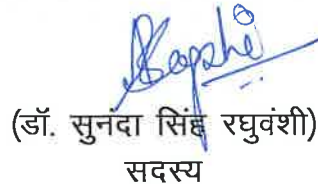 (डॉ. सुनंदा सिंह रघुवंशी)
सदस्य